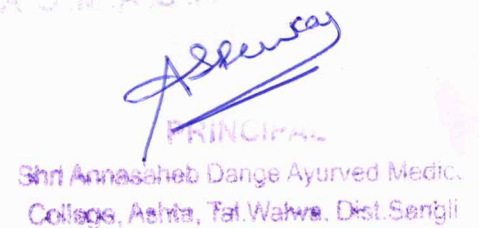 PRINCIPAL
Shri Annasaheb Dange Ayurved Medic.
College, Ashta, Tal.Walwa. Dist.Sangli